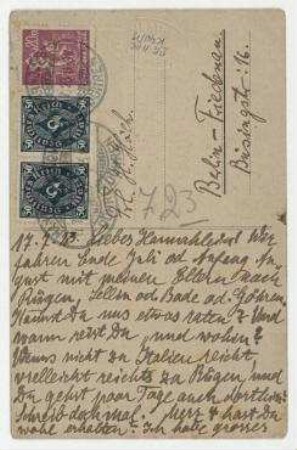 Frl. H. Höch.
Berlin-Friedenau
Büsingstr. 16.
723
17.7.23. Liebes Hannahlein! Wir
fahren Ende Juli od Anfang Au
gust mit meinen Eltern nach
Rügen, Sellin od. Baabe od. Göhren.
Kannst Du uns etwas raten? Und
wann reist Du und wohin?
Wenns nicht zu Italien reicht,
vielleicht reichts zu Rügen, und
Du gehst paar Tage auch dorthin.
Schreib doch mal. Merz 4 hast Du
wohl erhalten? Ich habe grosses